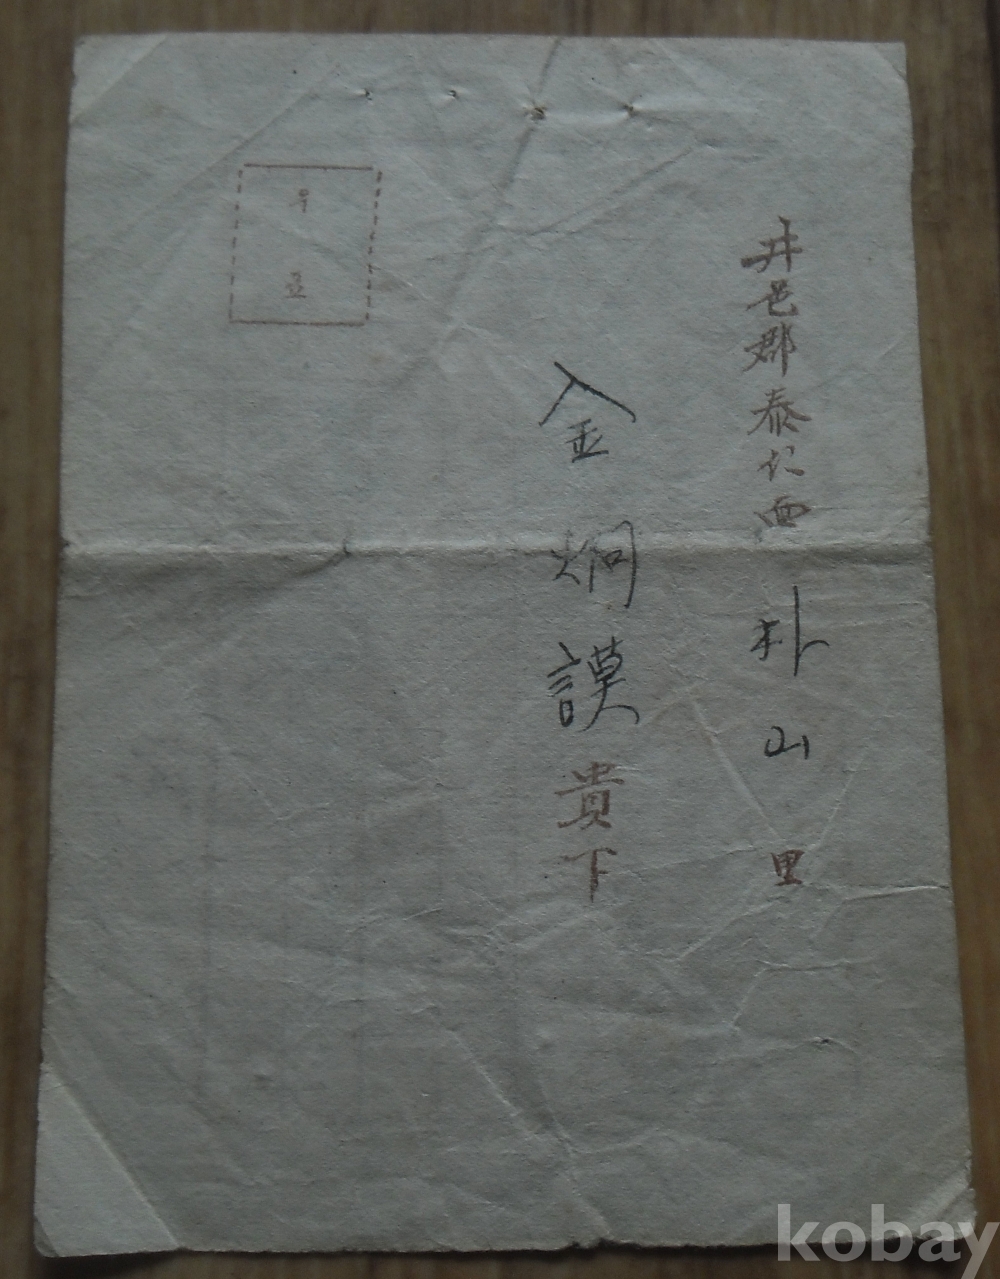 井邑郡泰仁面 朴山 里
金炯謨 貴下
우표
kobay